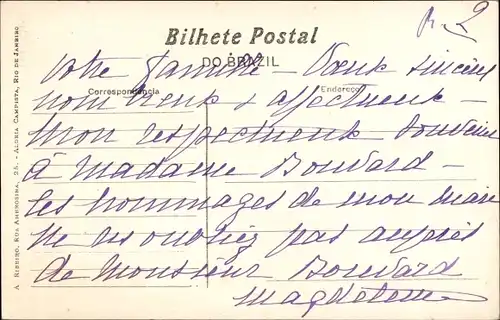 R. 2
Bilhete Postal
DO BRAZIL
votre famille - Vœux sincères
Correspondencia
Endereço
nombreux & affectueux -
mon respectueux souvenir
à Madame Bouvard -
les hommages de mon mari
Ne m'oubliez pas auprès
de Monsieur Bouvard
Magdeleine
A. RIBEIRO, RUA AMBROSINA, 25. - ALDEIA CAMPISTA, RIO DE JANEIRO